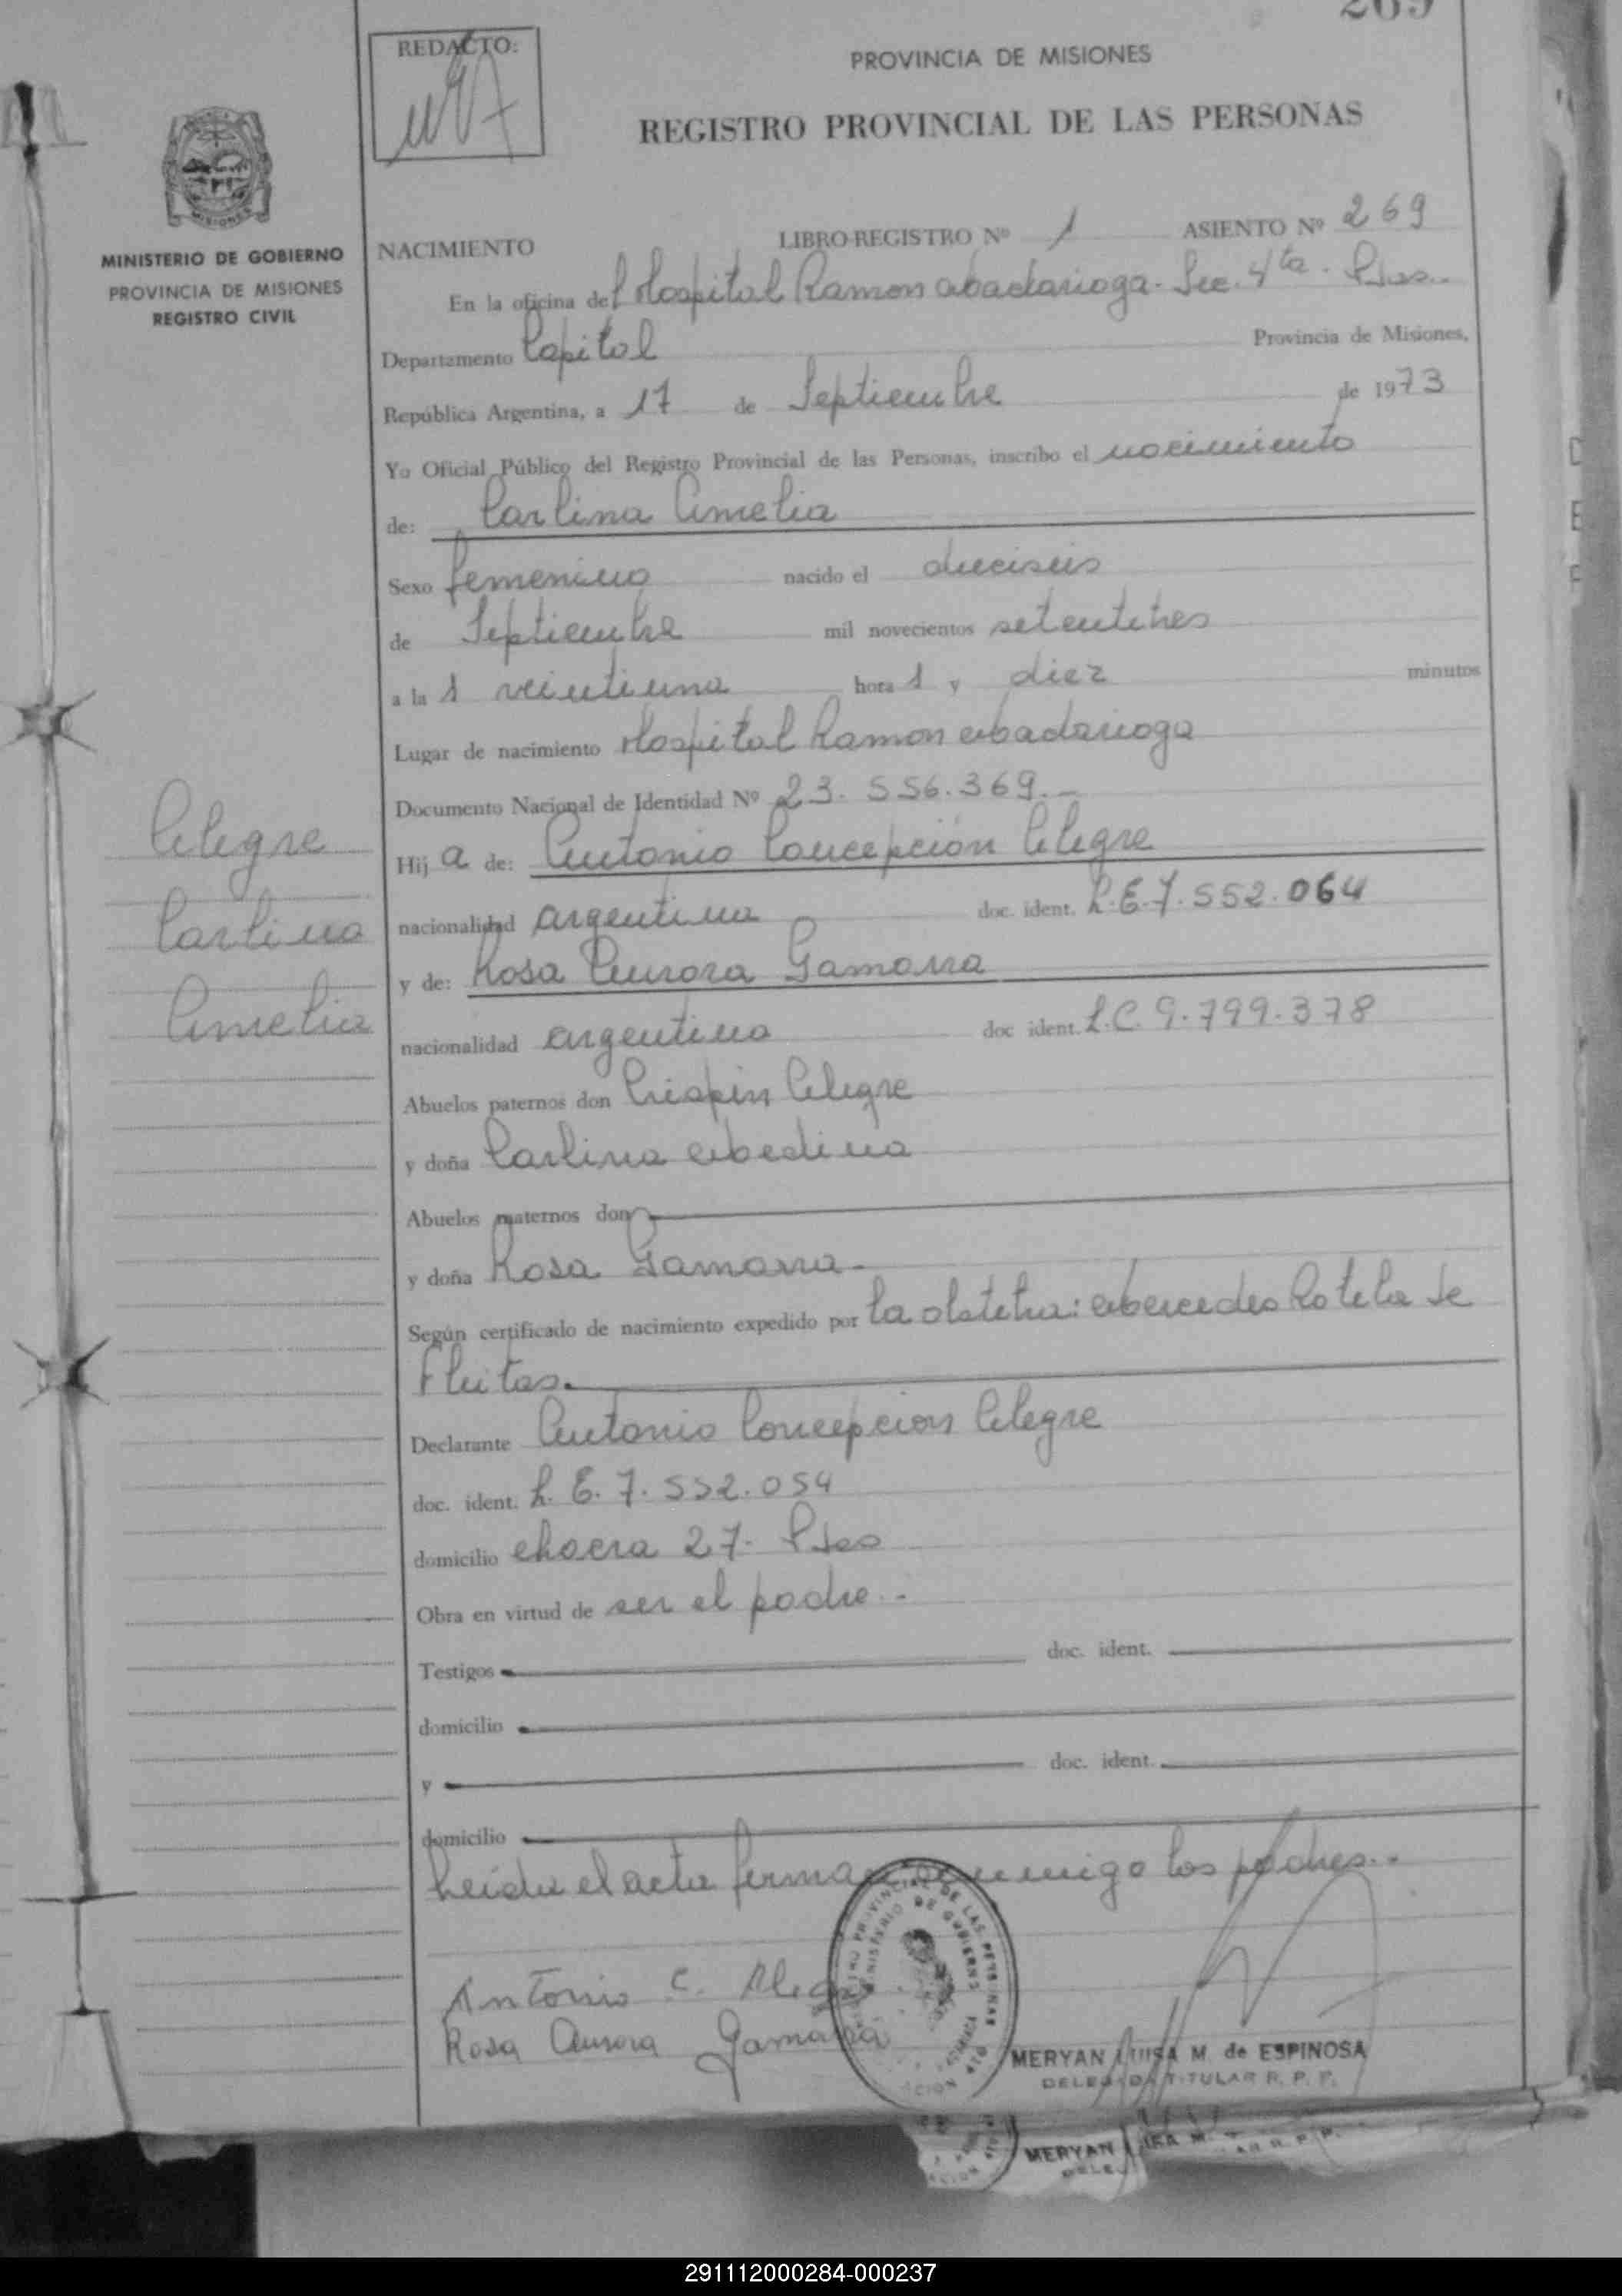 269
REDACTO:
PROVINCIA DE MISIONES
REGISTRO PROVINCIAL DE LAS PERSONAS
MISIONES
MINISTERIO DE GOBIERNO
PROVINCIA DE MISIONES
REGISTRO CIVIL
NACIMIENTO LIBRO-REGISTRO Nº 1 ASIENTO Nº 269
En la oficina del Hospital Ramon Madariaga - Sec. 4ta - Pdas.-
Departamento Capital Provincia de Misiones,
República Argentina, a 17 de Septiembre de 1973
Yo Oficial Público del Registro Provincial de las Personas, inscribo el nacimiento
de: Carlina Amelia
Sexo femenino nacido el dieciseis
de Septiembre mil novecientos setentitres
a las veintiuna horas y diez minutos
Lugar de nacimiento Hospital Ramon Madariaga
Documento Nacional de Identidad Nº 23.556.369.-
Hija de: Antonio Concepción Alegre
nacionalidad argentina doc. ident. L.E. 7.552.064
y de: Rosa Aurora Gamarra
nacionalidad argentina doc ident. L.C. 9.799.378
Abuelos paternos don Crispin Alegre
y doña Carlina Medina
Abuelos maternos don
y doña Rosa Gamarra.-
Según certificado de nacimiento expedido por la obstetra: Mercedes Rotela de
Fleitas.
Declarante Antonio Concepcion Alegre
doc. ident. L.E. 7.552.054
domicilio chacra 27- Pdas
Obra en virtud de ser el padre.-
Testigos doc. ident.
domicilio
y doc. ident.
domicilio
Leida el acta firman conmigo los padres.-
Alegre
Carlina
Amelia
Antonio C. Alegre
Rosa Aurora Gamarra
MERYAN LUISA M. de ESPINOSA
DELEGADA TITULAR R. P. P.
MERYAN
291112000284-000237